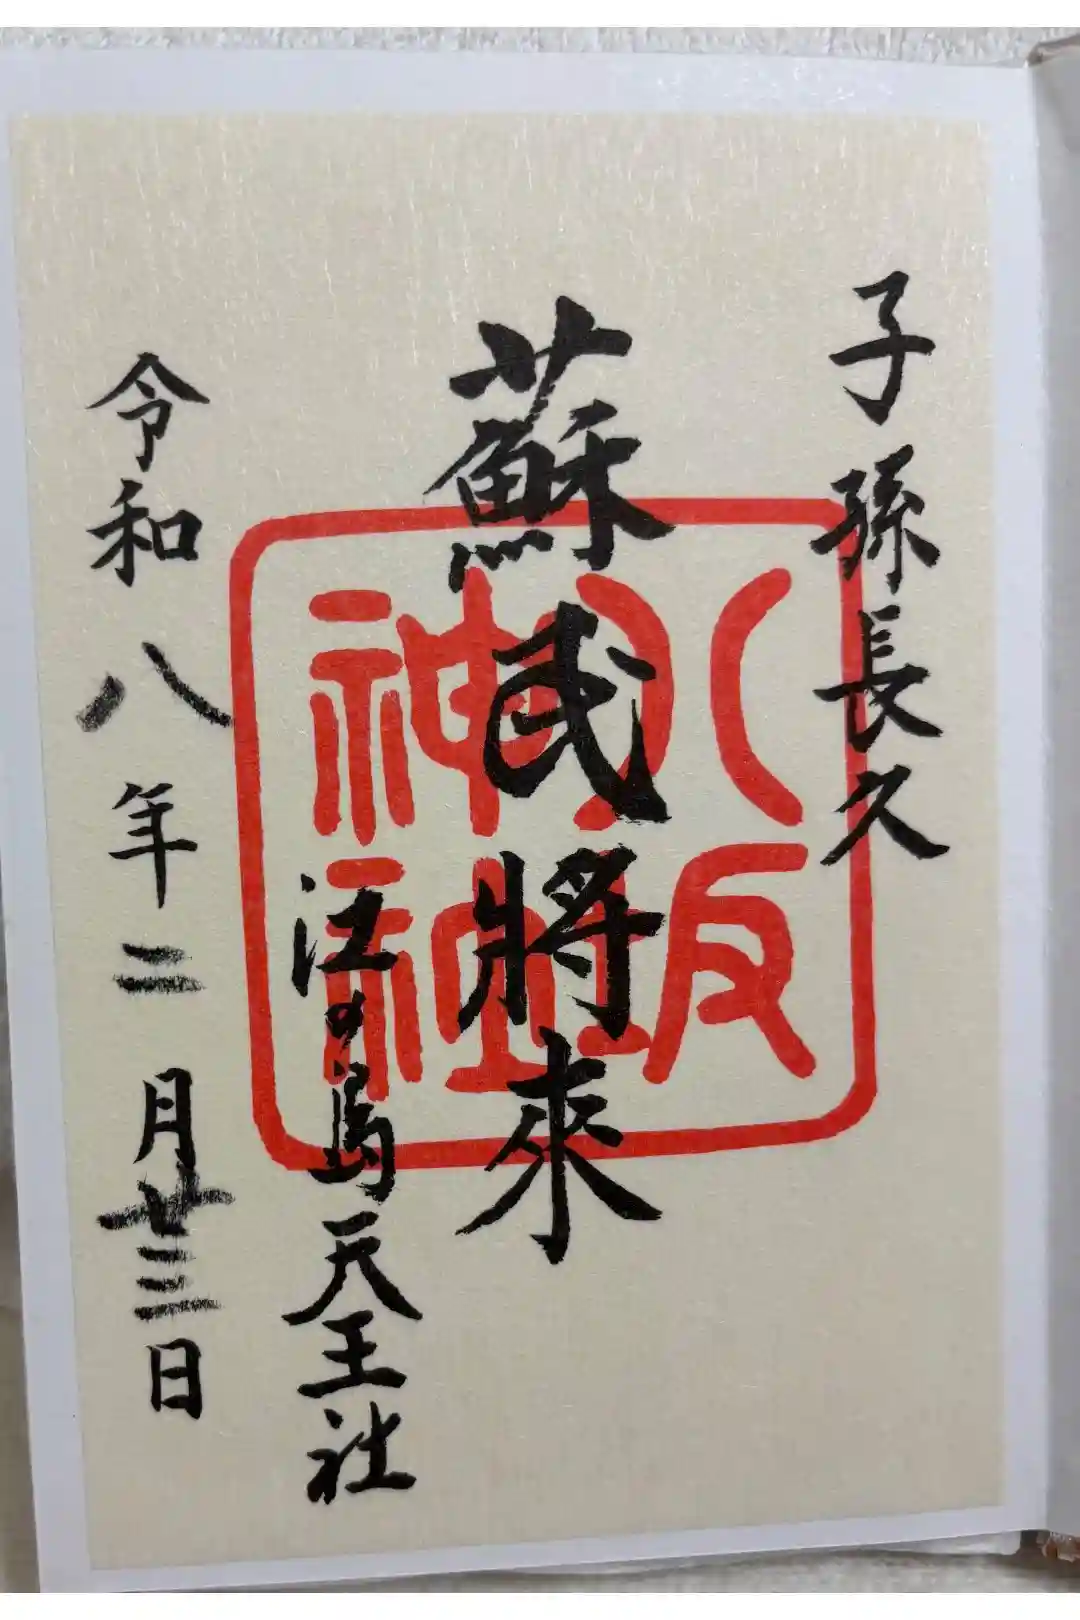 子孫長久
蘇民將來
江の島天王社
令和八年二月廿三日
八坂神社